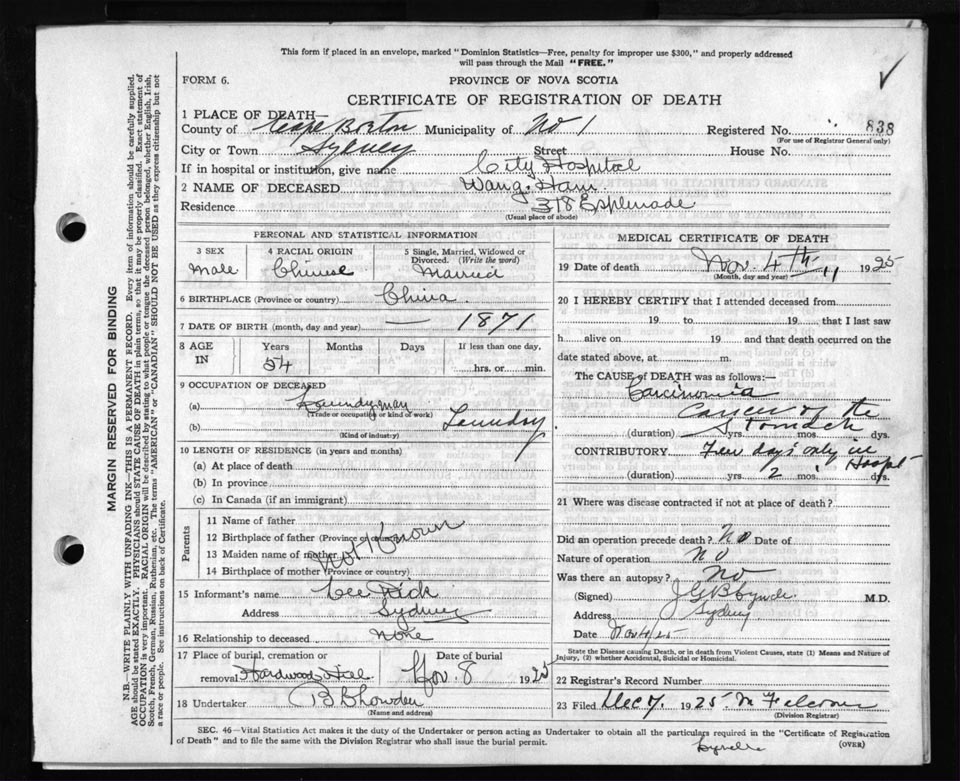 This form if placed in an envelope, marked "Dominion Statistics—Free, penalty for improper use $300," and properly addressed
will pass through the Mail "FREE."
FORM 6.
PROVINCE OF NOVA SCOTIA
CERTIFICATE OF REGISTRATION OF DEATH
1 PLACE OF DEATH—
County of Cape Breton Municipality of No 1 Registered No. 838
(For use of Registrar General only)
City or Town Sydney Street House No.
If in hospital or institution, give name City Hospital
2 NAME OF DECEASED Wang Ham
Residence 318 Esplenade
(Usual place of abode)
PERSONAL AND STATISTICAL INFORMATION
3 SEX
Male
4 RACIAL ORIGIN
Chinese
5 Single, Married, Widowed or
Divorced. (Write the word)
Married
6 BIRTHPLACE (Province or country) China
7 DATE OF BIRTH (month, day and year) — 1871
8 AGE IN
Years
54
Months
Days
If less than one day,
hrs. or min.
9 OCCUPATION OF DECEASED
(a) Laundryman
(Trade or occupation or kind of work)
(b) Laundry
(Kind of industry)
10 LENGTH OF RESIDENCE (in years and months)
(a) At place of death
(b) In province
(c) In Canada (if an immigrant)
Parents
11 Name of father
12 Birthplace of father (Province or country)
13 Maiden name of mother
14 Birthplace of mother (Province or country)
Not Known
15 Informant's name Lee
Address Sydney
16 Relationship to deceased None
17 Place of burial, cremation or
removal Hardwood Hill
Date of burial
Nov. 8 1925
18 Undertaker
(Name and address)
MEDICAL CERTIFICATE OF DEATH
19 Date of death Nov. 4th 11 1925
(Month, day and year)
20 I HEREBY CERTIFY that I attended deceased from
19 to 19 that I last saw
h alive on 19 and that death occurred on the
date stated above, at m.
The CAUSE OF DEATH was as follows:—
Carcinomia
Cancer of the
Stomach
(duration) yrs. mos. dys.
CONTRIBUTORY Few days only in
Hospt
(duration) yrs. 2 mos. dys.
21 Where was disease contracted if not at place of death?
Did an operation precede death? No Date of
Nature of operation No
Was there an autopsy? No
(Signed) M.D.
Address Sydney
Date Nov 4/25
State the Disease causing Death, or in death from Violent Causes, state (1) Means and Nature of
Injury, (2) whether Accidental, Suicidal or Homicidal.
22 Registrar's Record Number
23 Filed Dec 7. 1925
(Division Registrar)
SEC. 46—Vital Statistics Act makes it the duty of the Undertaker or person acting as Undertaker to obtain all the particulars required in the "Certificate of Registration
of Death" and to file the same with the Division Registrar who shall issue the burial permit.
(OVER)
MARGIN RESERVED FOR BINDING
N.B.—WRITE PLAINLY WITH UNFADING INK—THIS IS A PERMANENT RECORD. Every item of information should be carefully supplied.
AGE should be stated EXACTLY. PHYSICIANS should STATE CAUSE OF DEATH in plain terms, so that it may be properly classified. Exact statement of
OCCUPATION is very important. RACIAL ORIGIN will be described by stating to what people or tongue the deceased person belonged, whether English, Irish,
Scotch, French, German, Russian, Ruthenian, etc. The terms "AMERICAN" or "CANADIAN" SHOULD NOT BE USED as they express citizenship but not
a race or people. See instructions on back of Certificate.